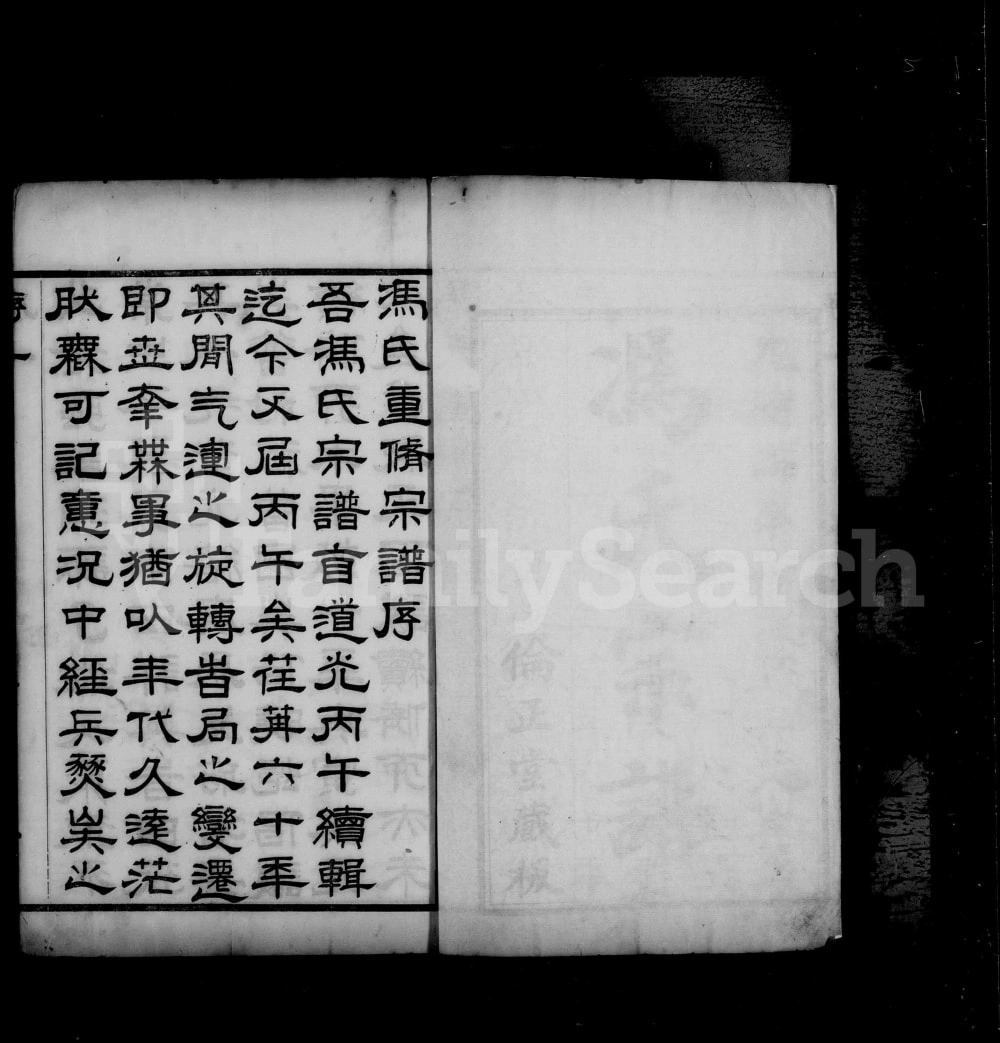 馮氏重脩宗譜序
吾馮氏宗譜自道光丙午續輯
迄今又屆丙午矣荏苒六十年
其間气運之旋轉時局之變遷
即世牽槑事猶以年代久遠茫
肰無可記憶況中經兵燹矣之
序 一
倫正堂藏板
FamilySearch